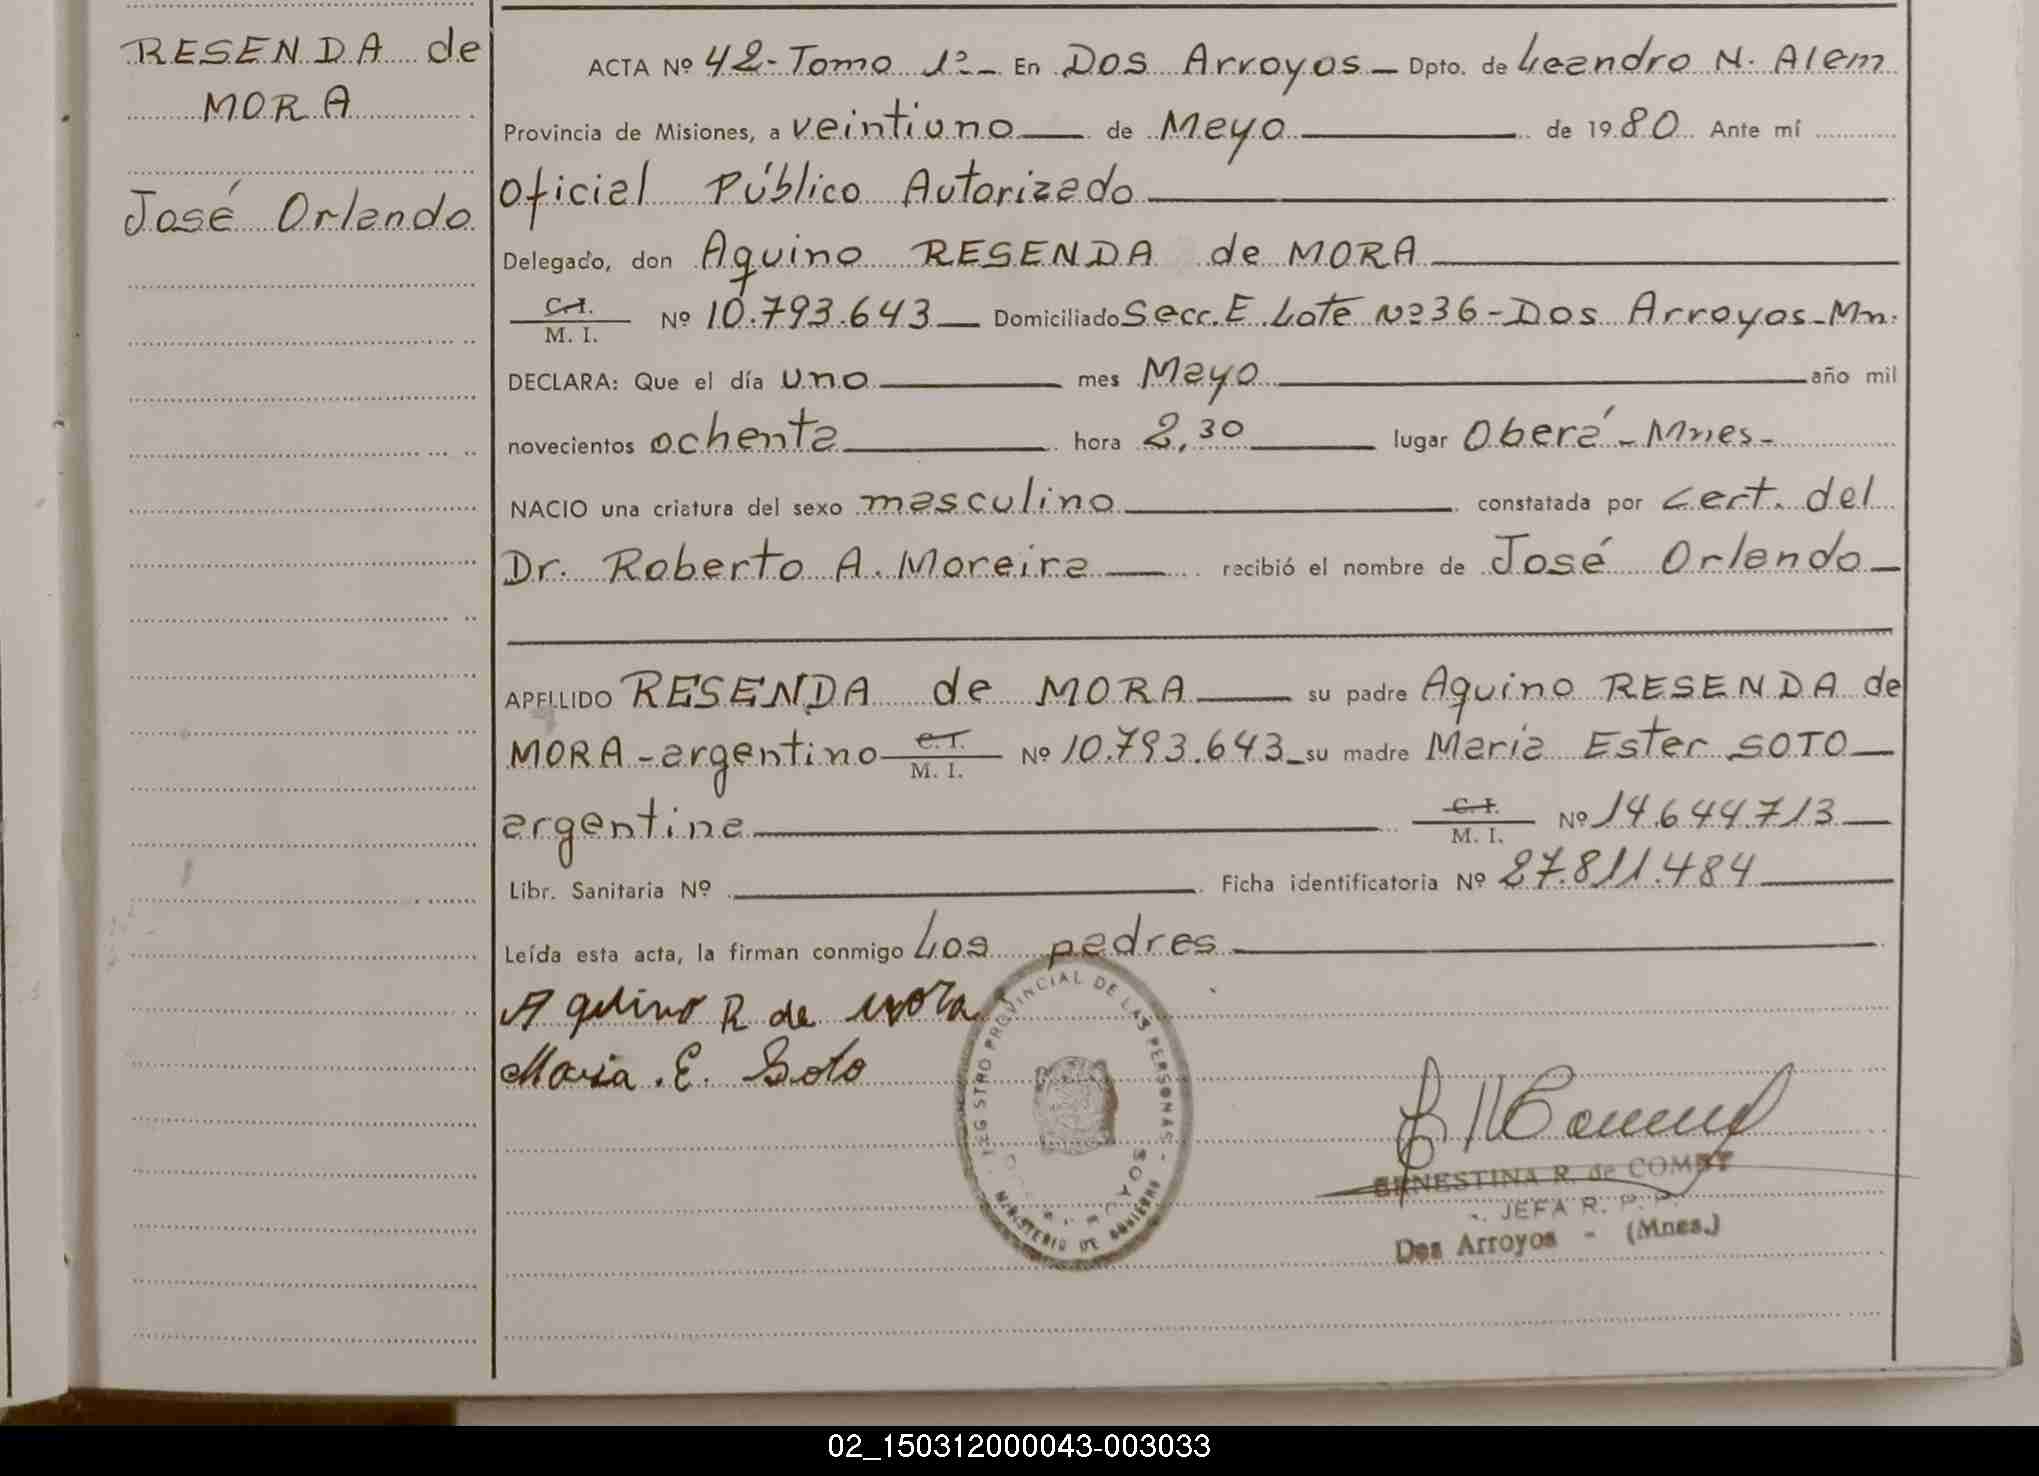 RESENDA de
MORA
José Orlando
ACTA Nº 42-Tomo 1º- En Dos Arroyos - Dpto. de Leandro N. Alem
Provincia de Misiones, a veintiuno de Mayo de 1980 Ante mí
Oficial Público Autorizado
Delegado, don Aquino RESENDA de MORA
C.I. M. I. Nº 10.793.643 Domiciliado Secc. E Lote Nº 36-Dos Arroyos-Mn.
DECLARA: Que el día uno mes Mayo año mil
novecientos ochenta hora 2,30 lugar Oberá-Mnes-
NACIO una criatura del sexo masculino constatada por Cert. del
Dr. Roberto A. Moreira recibió el nombre de José Orlando
APELLIDO RESENDA de MORA su padre Aquino RESENDA de
MORA-argentino C.I. M. I. Nº 10.793.643 su madre María Ester SOTO
argentina C.I. M. I. Nº 14.644.713
Libr. Sanitaria Nº Ficha identificatoria Nº 27.811.484
Leída esta acta, la firman conmigo Los padres
Aquino R de mora
Maria. E. Soto
REGISTRO PROVINCIAL DE LAS PERSONAS
MINISTERIO DE GOBIERNO
ERNESTINA R. de
JEFA R. P. P.
Dos Arroyos - (Mnes.)
02_150312000043-003033